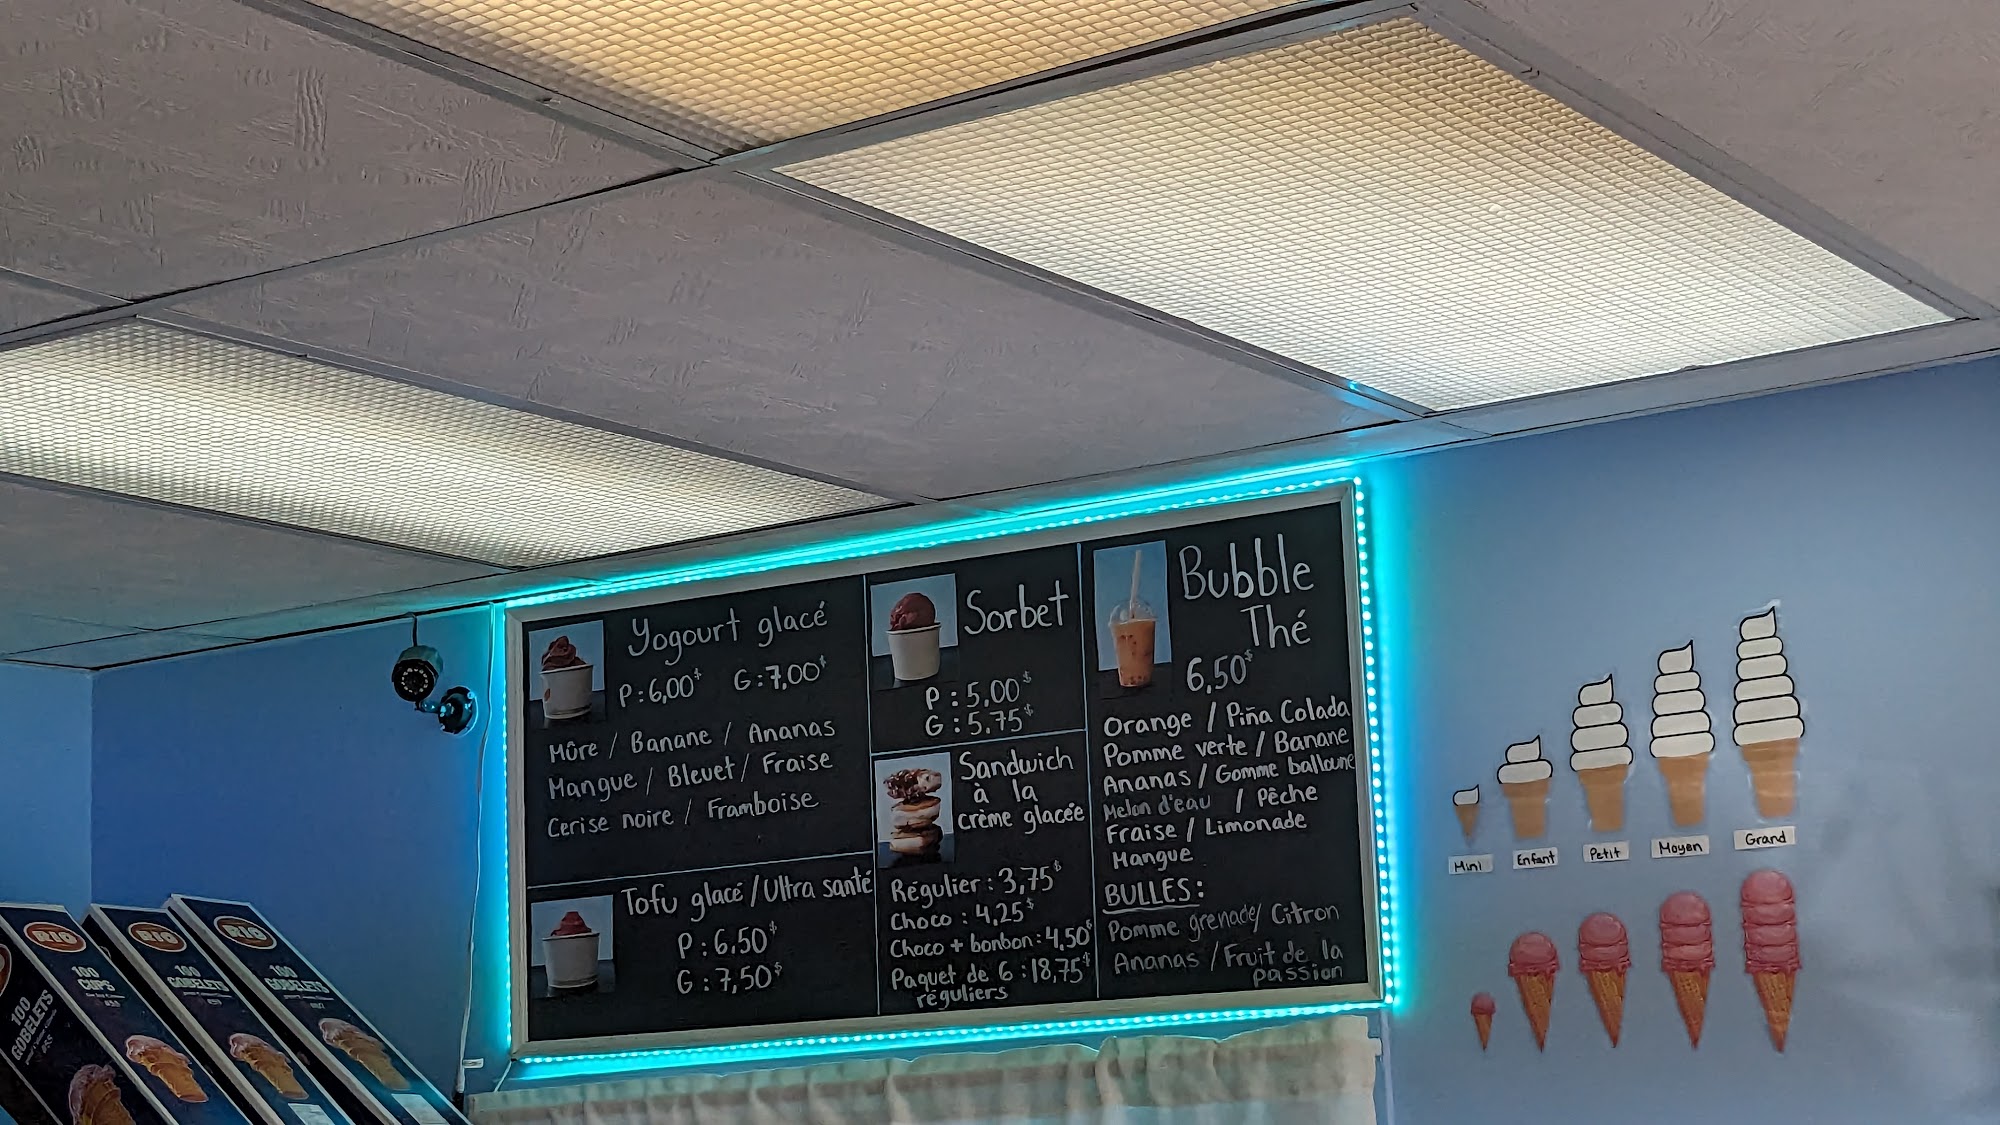 Yogourt glacé
P : 6,00$ G : 7,00$
Mûre / Banane / Ananas
Mangue / Bleuet / Fraise
Cerise noire / Framboise
Tofu glacé / Ultra santé
P : 6,50$
G : 7,50$
Sorbet
P : 5,00$
G : 5,75$
Sandwich
à la
crème glacée
Régulier : 3,75$
Choco : 4,25$
Choco + bonbon : 4,50$
Paquet de 6 : 18,75$
réguliers
Bubble
Thé
6,50$
Orange / Piña Colada
Pomme verte / Banane
Ananas / Gomme balloune
Melon d'eau / Pêche
Fraise / Limonade
Mangue
BULLES :
Pomme grenade / Citron
Ananas / Fruit de la
passion
Mini
Enfant
Petit
Moyen
Grand
100
GOBELETS
RIO
100
CUPS
RIO
100
GOBELETS
RIO
100
GOBELETS